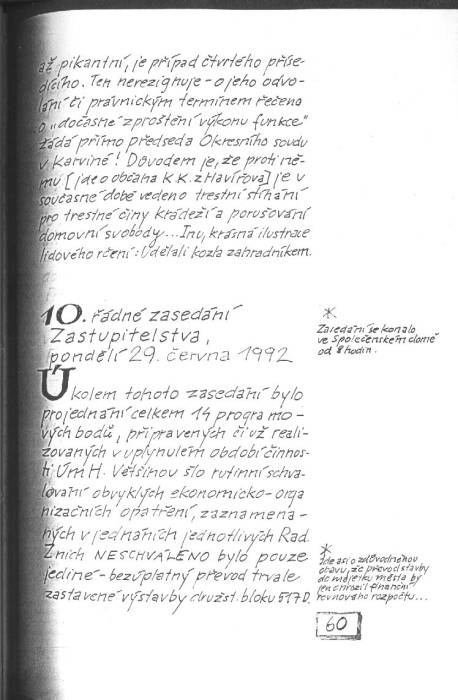 až pikantní, je případ čtvrtého příse-
dícího. Ten nerezignuje - o jeho odvo-
lání či právnickým termínem řečeno
o „dočasné zproštění výkonu funkce"
žádá přímo předseda Okresního soudu
v Karviné! Důvodem je, že proti ně-
mu [jde o občana K.K. z Havířova] je v
současné době vedeno trestní stíhání
pro trestné činy krádeží a porušování
domovní svobody... Inu, krásná ilustrace
lidového rčení: Udělali kozla zahradníkem.
10. řádné zasedání
Zastupitelstva,
pondělí 29. června 1992
*
Zasedání se konalo
ve Společenském domě
od 8 hodin.
Úkolem tohoto zasedání bylo
projednání celkem 14 programo-
vých bodů, připravených či už reali-
zovaných v uplynulém období činnos-
ti ÚmH. Většinou šlo rutinní schva-
lování obvyklých ekonomicko-orga
nizačních opatření, zaznamena-
ných v jednáních jednotlivých Rad.
Z nich NESCHVÁLENO bylo pouze
jediné - bezúplatný převod trvale
zastavené výstavby družst. bloku 517D.
*
Jde asi o zdůvodněnou
obavu, že převod stavby
do majetku města by
jen ohrozil finanční
rovnováhu rozpočtu...
60